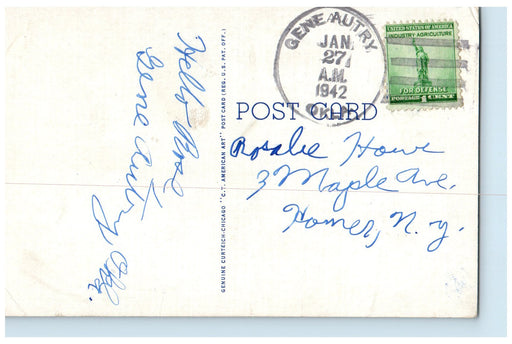 Hello Rose
Gene Autry Okla.
GENUINE CURTEICH-CHICAGO "C.T. AMERICAN ART" POST CARD (REG. U.S. PAT. OFF.)
GENE AUTRY,
JAN
27
A.M.
1942
OKLA.
UNITED STATES OF AMERICA
INDUSTRY AGRICULTURE
FOR DEFENSE
POSTAGE 1 CENT
POST CARD
Rosalie Howe
3 Maple Ave.
Homer, N.Y.